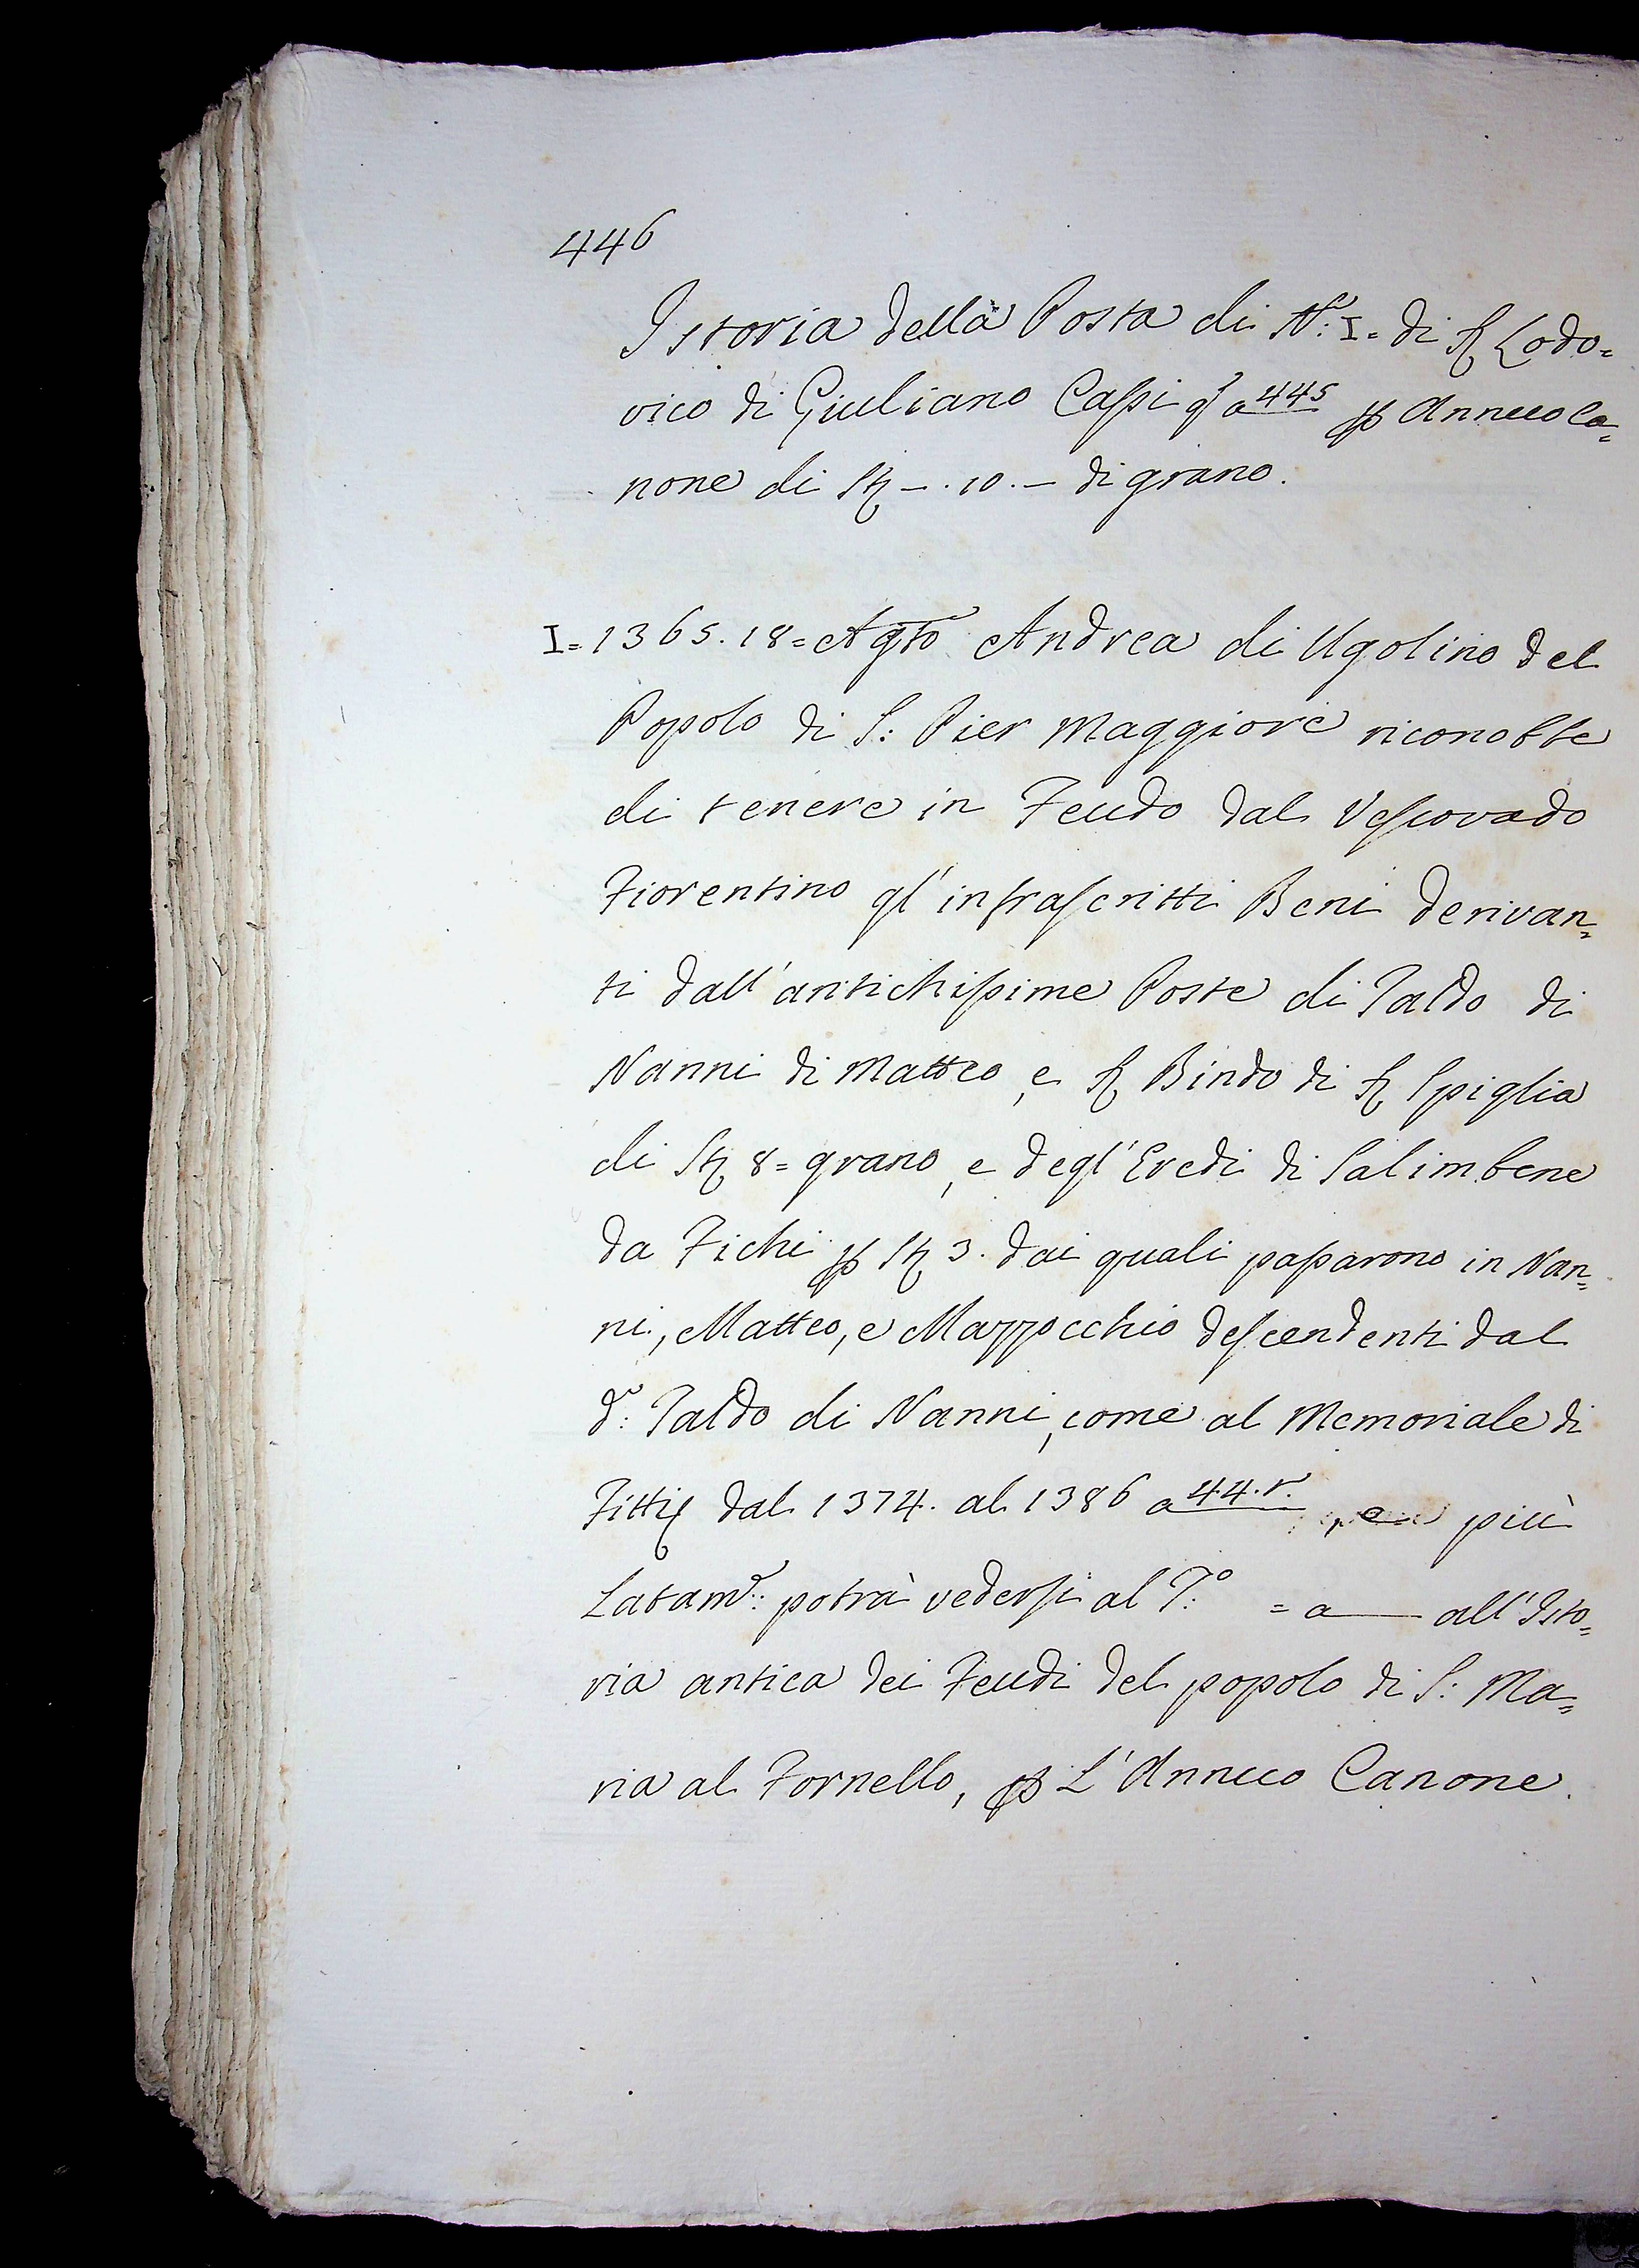 446
Istoria della Posta di N.º: I= di Sr Lodo=
vico di Giuliano Cassi qd a 445 p Annuo Ca=
none di St –.10.– di grano.
I= 1365. 18= Agto Andrea di Ugolino del
Popolo di S: Pier Maggiore riconobbe
di tenere in Feudo dal Vescovado
Fiorentino gl'infrascritti Beni derivan=
ti dall'antichissime Poste di Taldo di
Nanni di Matteo, e Sr Bindo di Sr Spiglia
di St 8= grano, e degl'Eredi di Salimbene
da Fichi p St 3. dai quali passarono in Nan=
ni, Matteo, e Mazzocchio descendenti dal
do: Taldo di Nanni, come al Memoriale di
Fitti dal 1374. al 1386 a 44.r. , e più
Latamte: potrà vedersi al T.º = a all'Isto=
ria antica dei Feudi del popolo di S: Ma=
ria al Fornello, p L'Annuo Canone.